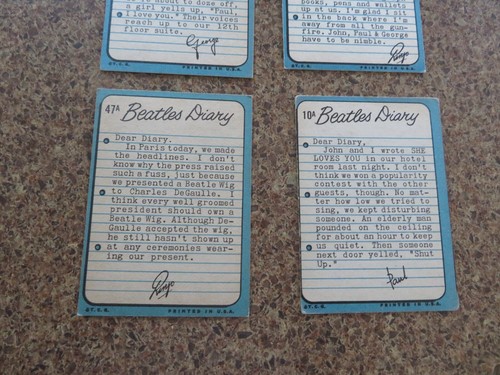 to doze off,
a girl yells up "Paul,
I love you." Their voices
reach up to our 12th
floor suite.
George
©T. C. G. PRINTED IN U.S.A.
books, pens and wallets
up at us. I'm glad I sit
in the back where I'm
away from all the gun-
fire. John, Paul & George
have to be nimble.
Ringo
©T. C. G. PRINTED IN U.S.A.
47A Beatles Diary
Dear Diary,
In Paris today, we made
the headlines. I don't
know why the press raised
such a fuss, just because
we presented a Beatle Wig
to Charles DeGaulle. I
think every well groomed
president should own a
Beatle Wig. Although De-
Gaulle accepted the wig,
he still hasn't shown up
at any ceremonies wear-
ing our present.
Ringo
©T. C. G. PRINTED IN U.S.A.
10A Beatles Diary
Dear Diary,
John and I wrote SHE
LOVES YOU in our hotel
room last night. I don't
think we won a popularity
contest with the other
guests, though. No mat-
ter how low we tried to
sing, we kept disturbing
someone. An elderly man
pounded on the ceiling
for about an hour to keep
us quiet. Then someone
next door yelled, "Shut
Up."
Paul
©T. C. G. PRINTED IN U.S.A.